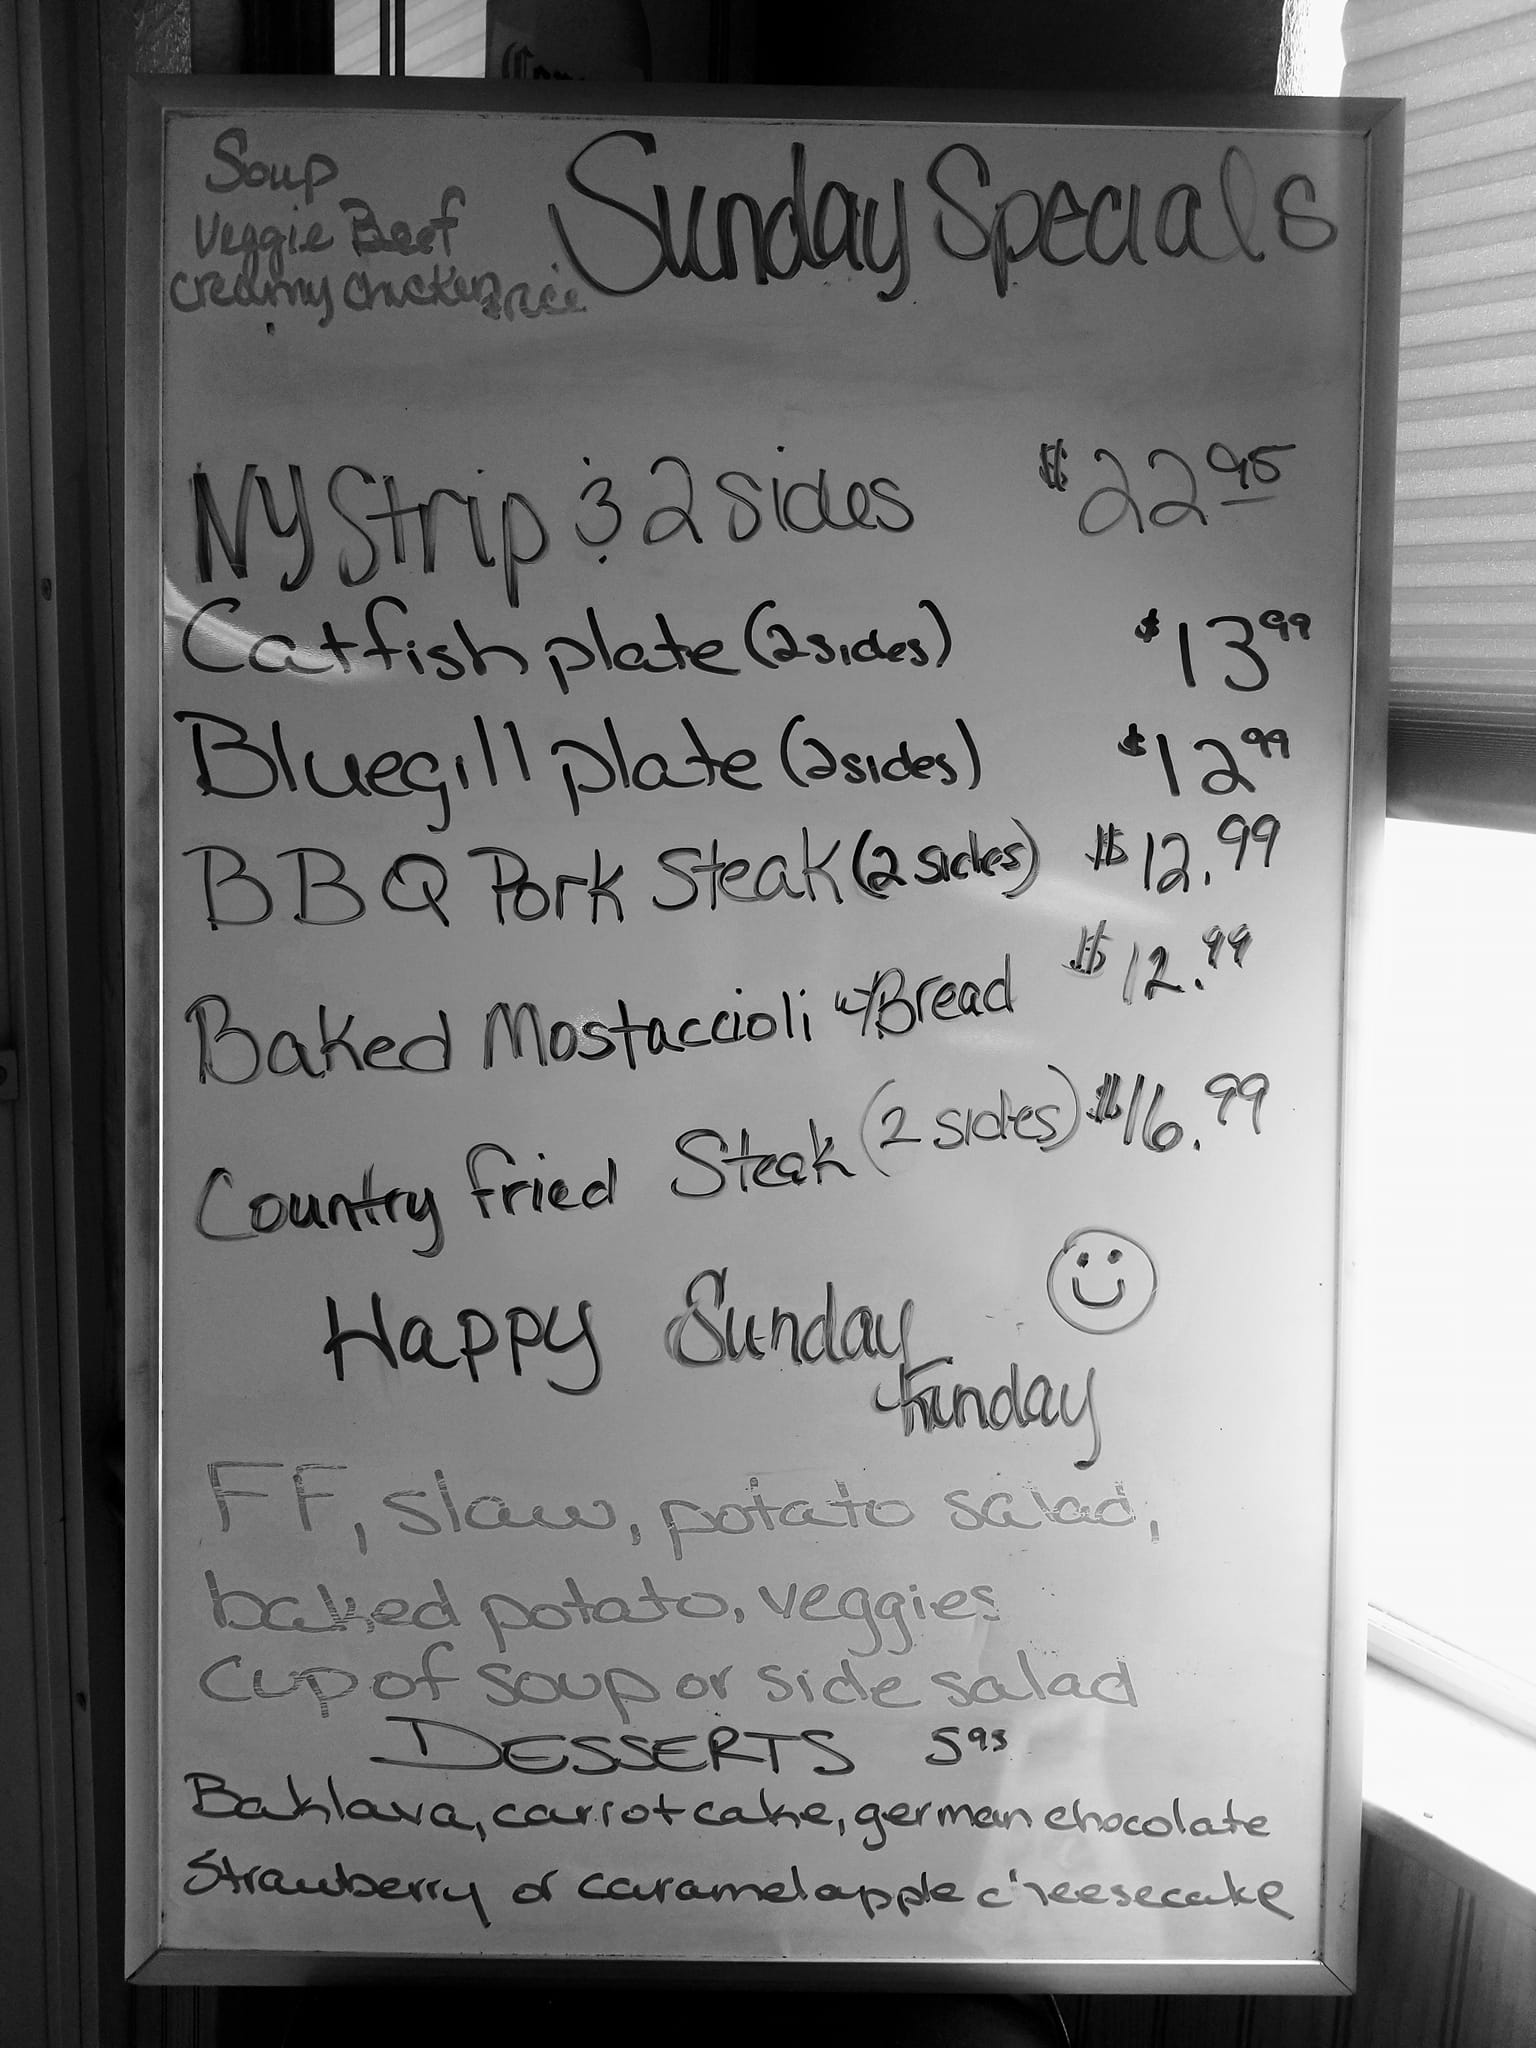 Soup
Veggie Beef
Creamy chicken rice
Sunday Specials
NY Strip & 2 sides $22 95
Catfish plate (2 sides) $13 99
Bluegill plate (2 sides) $12 99
BBQ Pork Steak (2 sides) $12.99
Baked Mostaccioli w/Bread $12.99
Country fried Steak (2 sides) $16.99
Happy Sunday
Funday
FF, slaw, potato salad,
baked potato, veggies
cup of soup or side salad
DESSERTS 5 95
Baklava, carrot cake, german chocolate
Strawberry or caramel apple cheesecake